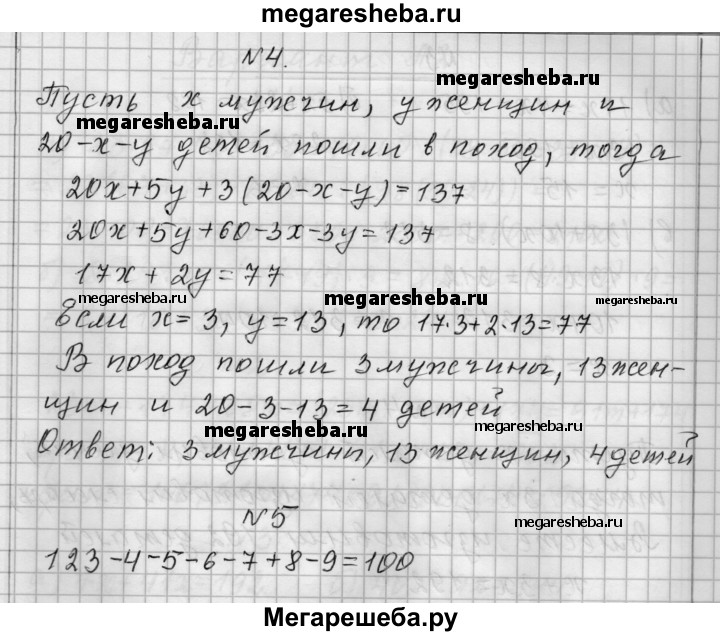 megaresheba.ru
N4.
megaresheba.ru
Пусть x мужчин, y женщин и
megaresheba.ru
20-x-y детей пошли в поход, тогда
20x+5y+3(20-x-y)=137
20x+5y+60-3x-3y=137
17x+2y=77
megaresheba.ru megaresheba.ru megaresheba.ru
Если x=3, y=13, то 17·3+2·13=77
В поход пошли 3 мужчины, 13 жен-
щин и 20-3-13=4 детей
megaresheba.ru megaresheba.ru
Ответ: 3 мужчины, 13 женщин, 4 детей
N5
megaresheba.ru
123-4-5-6-7+8-9=100
Мегарешеба.ру